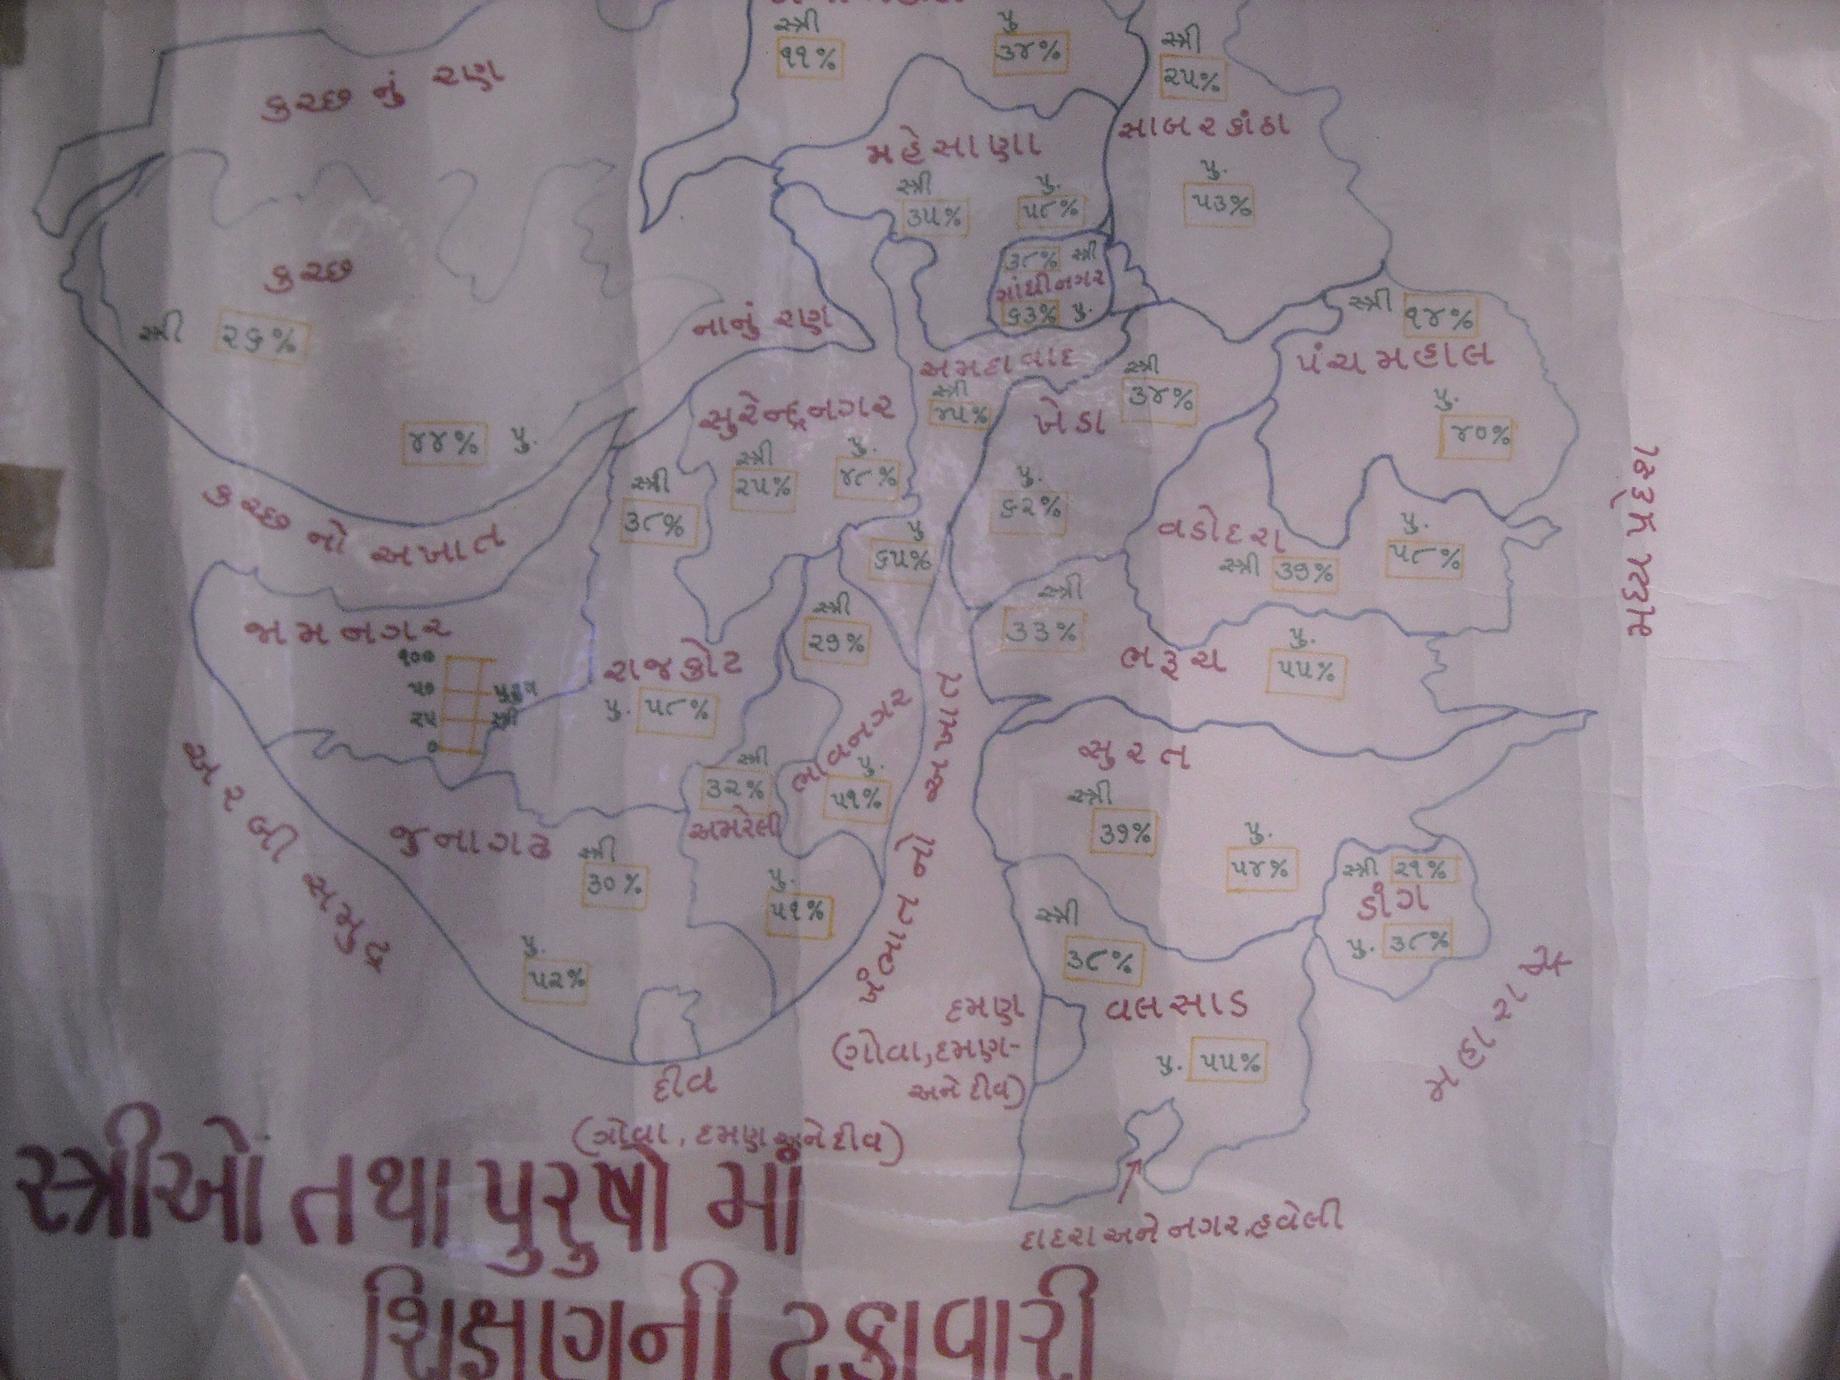 સ્ત્રી
૧૧%
પુ
૩૪%
સ્ત્રી
૨૫%
કચ્છ નું રણ
સાબરકાંઠા
મહેસાણા
પુ.
૫૩%
સ્ત્રી
૩૫%
પુ.
૫૮%
૩૮% સ્ત્રી
ગાંધીનગર
૬૩% પુ.
કચ્છ
સ્ત્રી ૨૬%
નાનું રણ
સ્ત્રી ૧૪%
પંચમહાલ
પુ.
૪૦%
અમદાવાદ
સ્ત્રી
૪૫%
સ્ત્રી
૩૪%
ખેડા
સુરેન્દ્રનગર
૪૪% પુ.
સ્ત્રી
૨૫%
પુ.
૪૮%
સ્ત્રી
૩૮%
પુ.
૬૨%
કચ્છ નો અખાત
પુ
૬૫%
વડોદરા
સ્ત્રી ૩૭%
પુ.
૫૮%
મધ્ય પ્રદેશ
સ્ત્રી
૨૭%
સ્ત્રી
૩૩%
જામનગર
૧૦૦
૫૦
૨૫
૦
રાજકોટ
પુ. ૫૮%
ભરૂચ
પુ.
૫૫%
ભાવનગર
પુ.
૫૧%
સ્ત્રી
૩૨%
અમરેલી
પુ.
૫૧%
ખંભાત નો અખાત
સુરત
સ્ત્રી
૩૭%
પુ.
૫૪%
અરબી સમુદ્ર
જુનાગઢ
સ્ત્રી
૩૦%
પુ.
૫૨%
સ્ત્રી ૨૧%
ડાંગ
પુ. ૩૮%
સ્ત્રી
૩૮%
વલસાડ
પુ. ૫૫%
દમણ
(ગોવા, દમણ-
અને દીવ)
મહારાષ્ટ્ર
દીવ
(ગોવા, દમણ અને દીવ)
દાદરા અને નગર હવેલી
સ્ત્રીઓ તથા પુરુષો માં
શિક્ષણની ટકાવારી